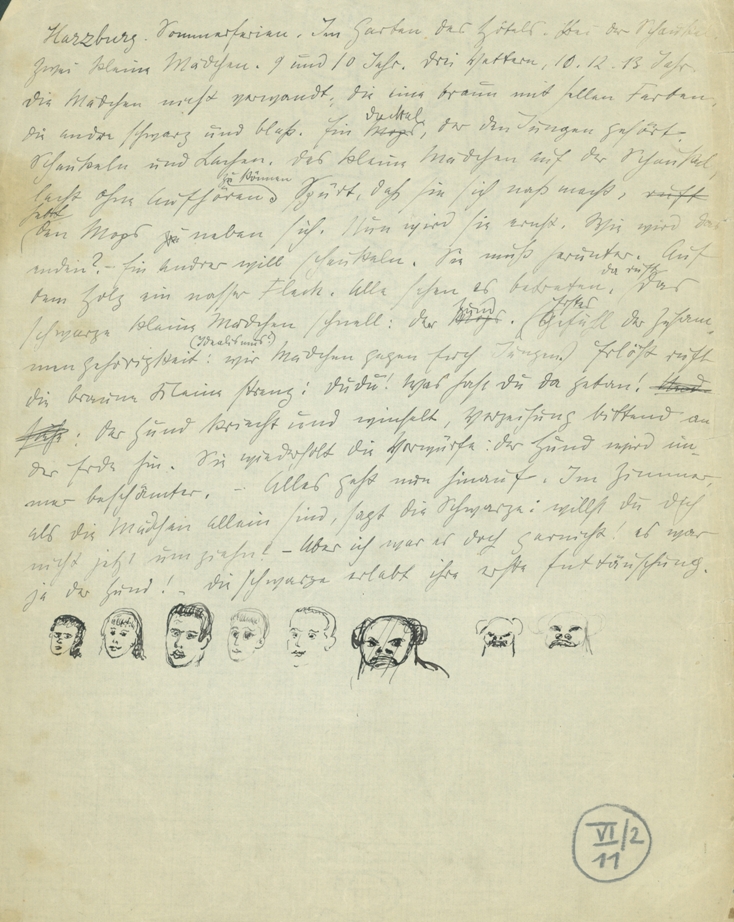 Harzburg. Sommerferien. Im Garten des Hôtels. Bei der Schaukel.
Zwei kleine Mädchen. 9 und 10 Jahr. Drei Vettern, 10. 12. 13 Jahr.
Die Mädchen nicht verwandt, die eine braun mit hellen Farben,
die andre schwarz und blaß. Ein Mops, Dackel, der den Jungen gehört.
Schaukeln und Lachen. Das kleine Mädchen auf der Schaukel,
lacht ohne Aufhören zu können. Spürt, daß sie sich naß macht, ruft
jetzt den Mops zu neben sich. Nun wird sie ernst. Wie wird das
enden? - Ein andrer will schaukeln. Sie muß herunter. Auf
dem Holz ein nasser Fleck. Alle sehen es betreten. da ruft Das
schwarze kleine Mädchen schnell: der Mops. Hund (Erstes Gefühl der Zusam-
mengehörigkeit: (Idealismus?) wir Mädchen gegen Jungen) Erlöst ruft
die braune Kleine streng: dudu! Was hast du da getan!
: der Hund kriecht und winselt, Verzeihung bittend an
der Erde hin. Sie wiederholt die Vorwürfe: der Hund wird im-
mer beschämter. - Alles geht nun hinauf. Im Zimmer,
als die Mädchen allein sind, sagt die Schwarze: willst du dich
nicht jetzt umziehn? - Aber ich war es doch garnicht! es war
ja der Hund! - Die schwarze erlebt ihre erste Enttäuschung.
VI/2
11